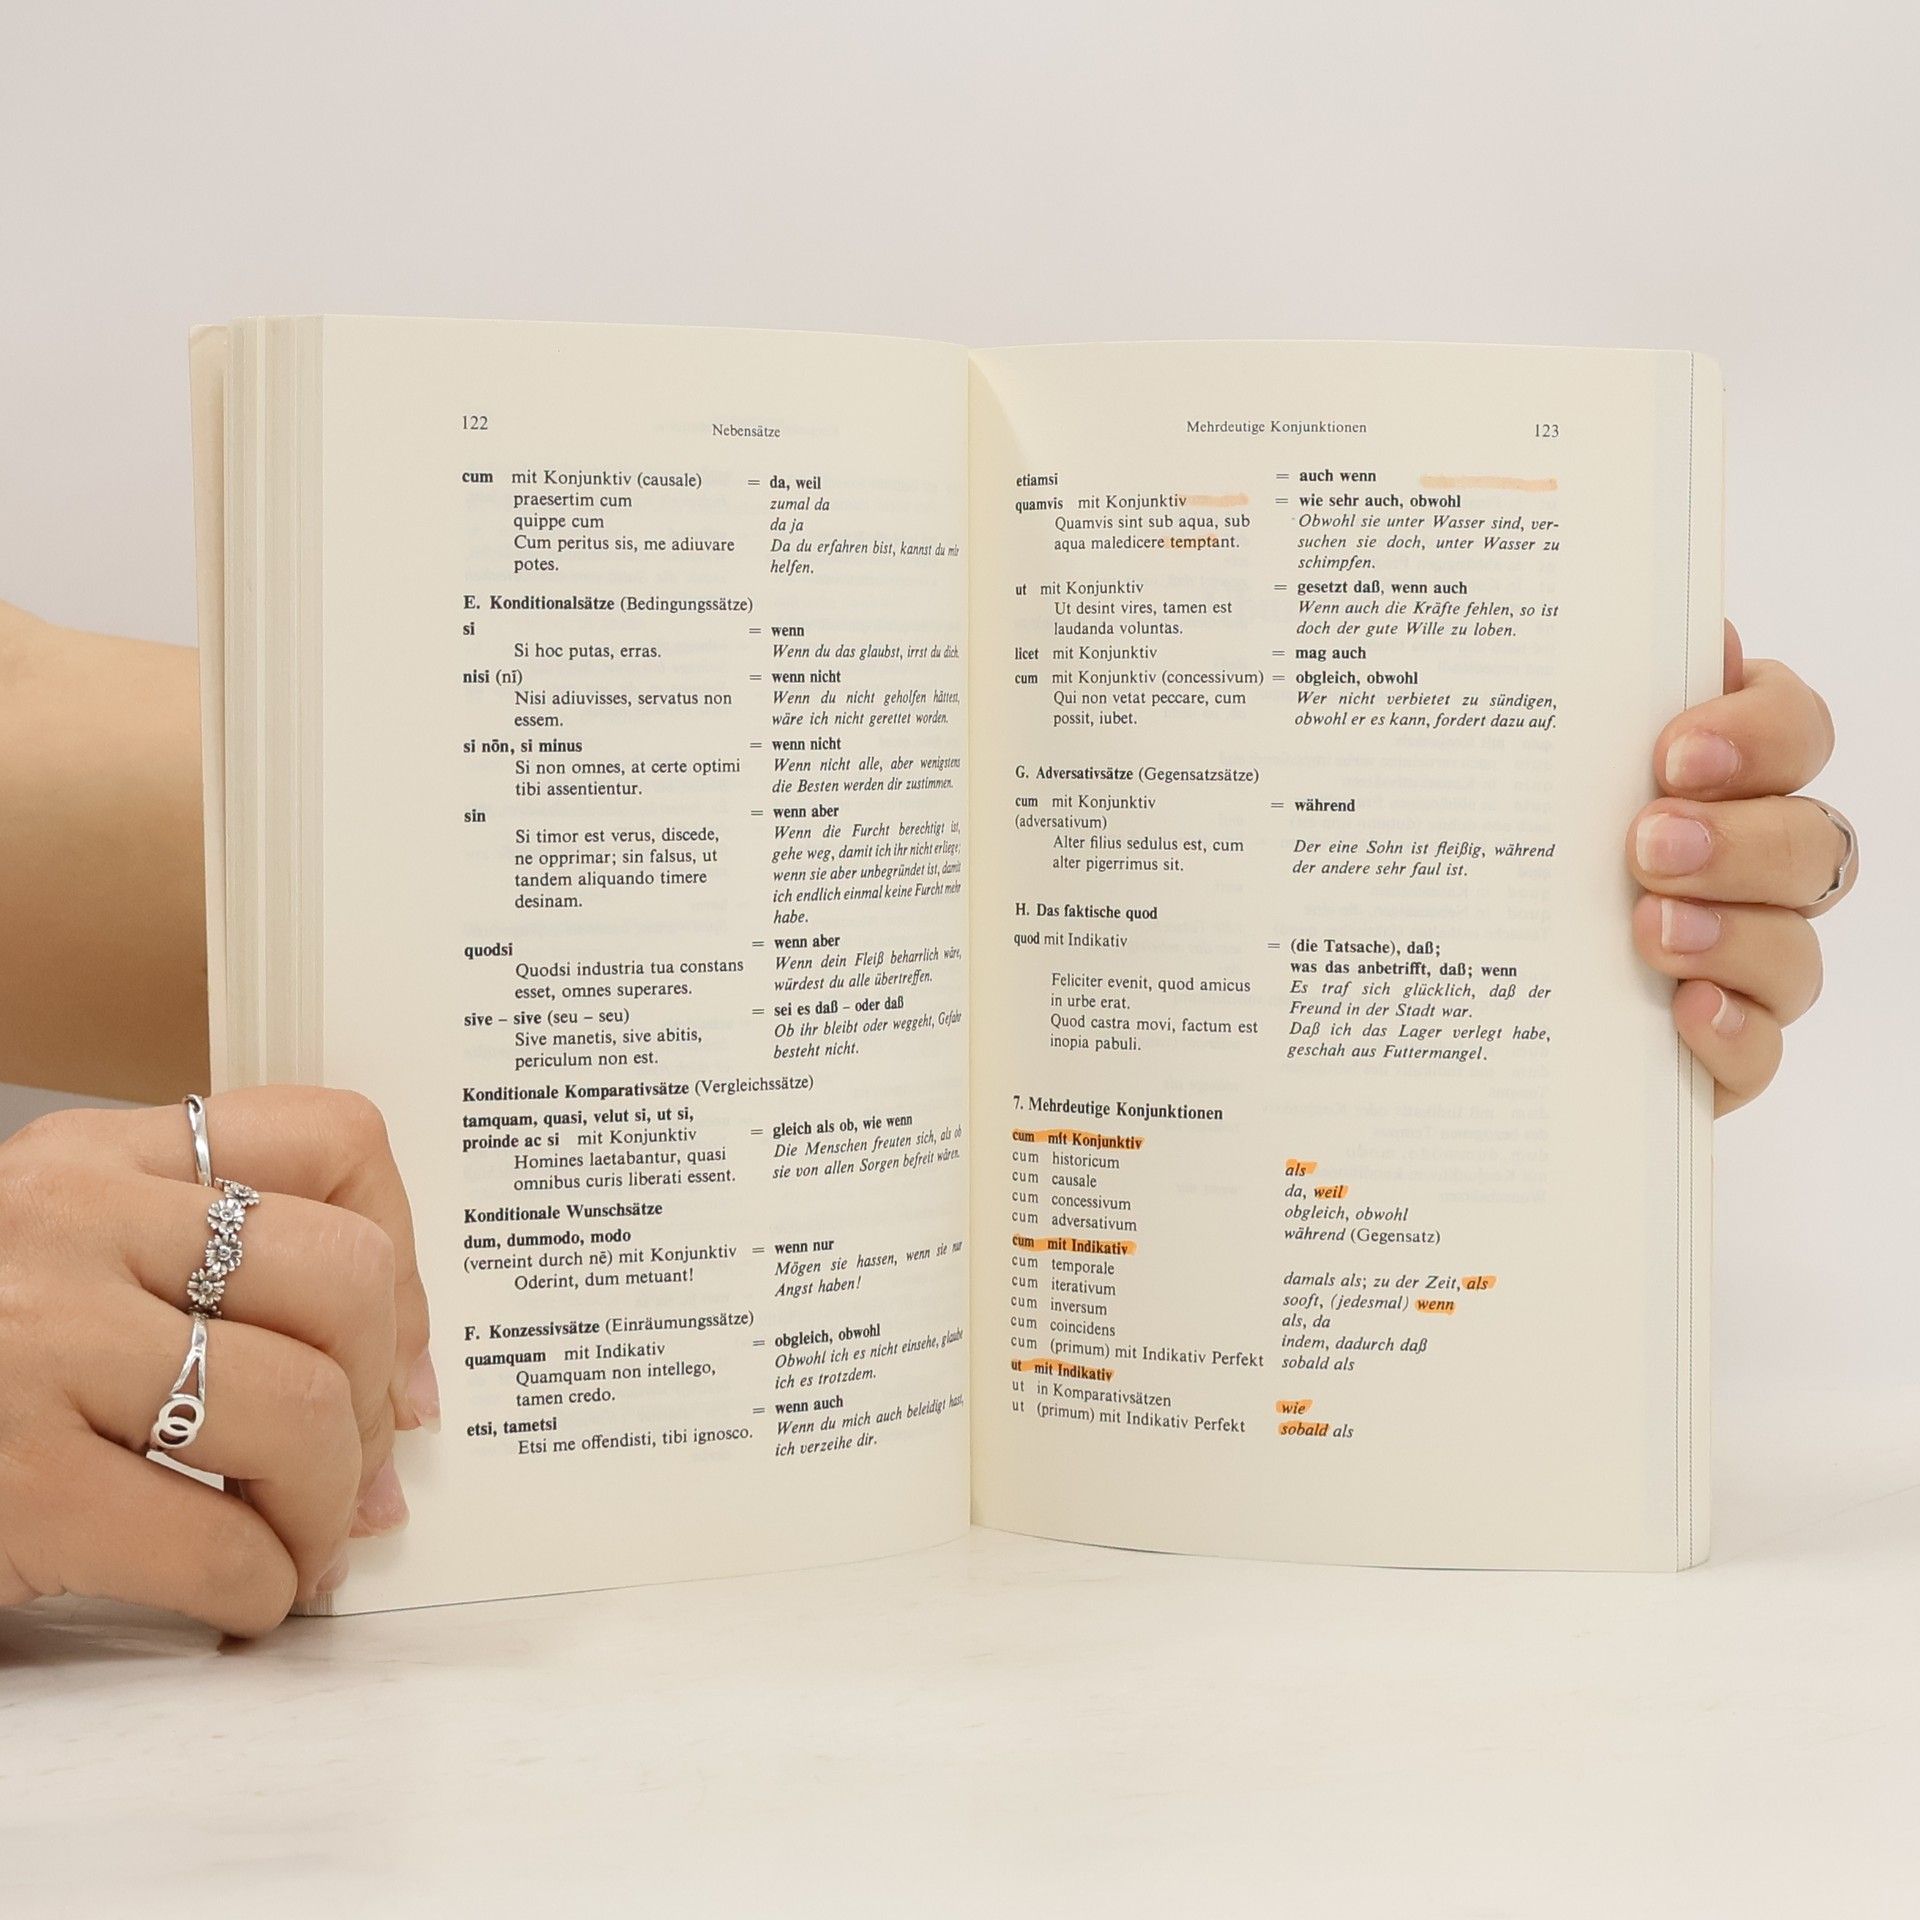 122
Nebensätze
cum mit Konjunktiv (causale) = da, weil
praesertim cum zumal da
quippe cum da ja
Cum peritus sis, me adiuvare Da du erfahren bist, kannst du mir
potes. helfen.
E. Konditionalsätze (Bedingungssätze)
si = wenn
Si hoc putas, erras. Wenn du das glaubst, irrst du dich.
nisi (nī) = wenn nicht
Nisi adiuvisses, servatus non Wenn du nicht geholfen hättest,
essem. wäre ich nicht gerettet worden.
si nōn, si minus = wenn nicht
Si non omnes, at certe optimi Wenn nicht alle, aber wenigstens
tibi assentientur. die Besten werden dir zustimmen.
sin = wenn aber
Si timor est verus, discede, Wenn die Furcht berechtigt ist,
ne opprimar; sin falsus, ut gehe weg, damit ich ihr nicht erliege;
tandem aliquando timere wenn sie aber unbegründet ist, damit
desinam. ich endlich einmal keine Furcht mehr
habe.
quodsi = wenn aber
Quodsi industria tua constans Wenn dein Fleiß beharrlich wäre,
esset, omnes superares. würdest du alle übertreffen.
sive – sive (seu – seu) = sei es daß – oder daß
Sive manetis, sive abitis, Ob ihr bleibt oder weggeht, Gefahr
periculum non est. besteht nicht.
Konditionale Komparativsätze (Vergleichssätze)
tamquam, quasi, velut si, ut si,
proinde ac si mit Konjunktiv = gleich als ob, wie wenn
Homines laetabantur, quasi Die Menschen freuten sich, als ob
omnibus curis liberati essent. sie von allen Sorgen befreit wären.
Konditionale Wunschsätze
dum, dummodo, modo
(verneint durch nē) mit Konjunktiv = wenn nur
Oderint, dum metuant! Mögen sie hassen, wenn sie nur
Angst haben!
F. Konzessivsätze (Einräumungssätze)
quamquam mit Indikativ = obgleich, obwohl
Quamquam non intellego, Obwohl ich es nicht einsehe, glaube
tamen credo. ich es trotzdem.
etsi, tametsi = wenn auch
Etsi me offendisti, tibi ignosco. Wenn du mich auch beleidigt hast,
ich verzeihe dir.
Mehrdeutige Konjunktionen
123
etiamsi = auch wenn
quamvis mit Konjunktiv = wie sehr auch, obwohl
Quamvis sint sub aqua, sub Obwohl sie unter Wasser sind, ver-
aqua maledicere temptant. suchen sie doch, unter Wasser zu
schimpfen.
ut mit Konjunktiv = gesetzt daß, wenn auch
Ut desint vires, tamen est Wenn auch die Kräfte fehlen, so ist
laudanda voluntas. doch der gute Wille zu loben.
licet mit Konjunktiv = mag auch
cum mit Konjunktiv (concessivum) = obgleich, obwohl
Qui non vetat peccare, cum Wer nicht verbietet zu sündigen,
possit, iubet. obwohl er es kann, fordert dazu auf.
G. Adversativsätze (Gegensatzsätze)
cum mit Konjunktiv = während
(adversativum)
Alter filius sedulus est, cum Der eine Sohn ist fleißig, während
alter pigerrimus sit. der andere sehr faul ist.
H. Das faktische quod
quod mit Indikativ = (die Tatsache), daß;
was das anbetrifft, daß; wenn
Feliciter evenit, quod amicus Es traf sich glücklich, daß der
in urbe erat. Freund in der Stadt war.
Quod castra movi, factum est Daß ich das Lager verlegt habe,
inopia pabuli. geschah aus Futtermangel.
7. Mehrdeutige Konjunktionen
cum mit Konjunktiv
cum historicum als
cum causale da, weil
cum concessivum obgleich, obwohl
cum adversativum während (Gegensatz)
cum mit Indikativ
cum temporale damals als; zu der Zeit, als
cum iterativum sooft, (jedesmal) wenn
cum inversum als, da
cum coincidens indem, dadurch daß
cum (primum) mit Indikativ Perfekt sobald als
ut mit Indikativ
ut in Komparativsätzen wie
ut (primum) mit Indikativ Perfekt sobald als